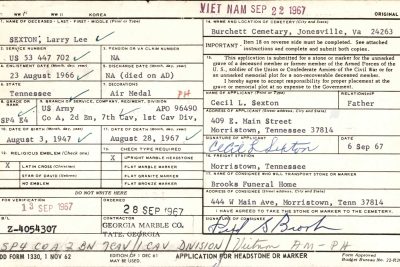 VIET NAM SEP 22 1967
WW II KOREA ORIGINAL
1. NAME OF DECEASED - LAST - FIRST - MIDDLE (Print or Type)
SEXTON, Larry Lee
2. SERVICE NUMBER
US 53 447 702
3. PENSION OR VA CLAIM NUMBER
NA
4. ENLISTMENT DATE (Month, day, year)
23 August 1966
5. DISCHARGE DATE (Month, day, year)
NA (died on AD)
6. STATE
Tennessee
7. DECORATIONS
Air Medal PH
8. GRADE
SP4 E4
9. BRANCH OF SERVICE, COMPANY, REGIMENT, DIVISION
US Army APO 96490
Co A, 2d Bn, 7th Cav, 1st Cav Div,
10. DATE OF BIRTH (Month, day, year)
August 3, 1947
11. DATE OF DEATH (Month, day, year)
August 28, 1967
12. RELIGIOUS EMBLEM (Check one)
X LATIN CROSS (Christian)
STAR OF DAVID (Hebrew)
NO EMBLEM
CHECK TYPE REQUIRED
X UPRIGHT MARBLE HEADSTONE
FLAT MARBLE MARKER
FLAT GRANITE MARKER
FLAT BRONZE MARKER
14. NAME AND LOCATION OF CEMETERY (City and State)
Burchett Cemetary, Jonesville, Va 24263
IMPORTANT: Item 18 on reverse side must be completed. See attached instructions and complete and submit both copies.
15. This application is submitted for a stone or marker for the unmarked grave of a deceased member or former member of the Armed Forces of the U. S., soldier of the Union or Confederate Armies of the Civil War or for an unmarked memorial plot for a non-recovered decedent.
I hereby agree to accept responsibility for proper placement at the grave or memorial plot at no expense to the Government.
NAME OF APPLICANT (Print or Type)
Cecil L. Sexton
RELATIONSHIP
Father
409 E. Main Street
Morristown, Tennessee 37814
SIGNATURE OF APPLICANT
Cecil L. Sexton
DATE
6 Sep 67
16. FREIGHT STATION
Morristown, Tennessee
17. NAME OF CONSIGNEE WHO WILL TRANSPORT STONE OR MARKER
Brooks Funeral Home
ADDRESS OF CONSIGNEE (Street, City and State)
444 W Main Ave, Morristown, Tenn 37814
I HAVE AGREED TO TAKE THE STONE OR MARKER TO THE CEMETERY.
SIGNATURE OF CONSIGNEE
DO NOT WRITE HERE
FOR VERIFICATION
13 SEP 1967
ORDERED
28 SEP 1967
CONTRACTOR
GEORGIA MARBLE CO.
TATE, GEORGIA
Z-4054307
SP4 CO A 2 BN 7 CAV 1 CAV DIVISION / Vietnam AM-PH
DD FORM 1330, 1 NOV 62
EDITION OF 1 DEC 61 MAY BE USED.
APPLICATION FOR HEADSTONE OR MARKER
Form Approved